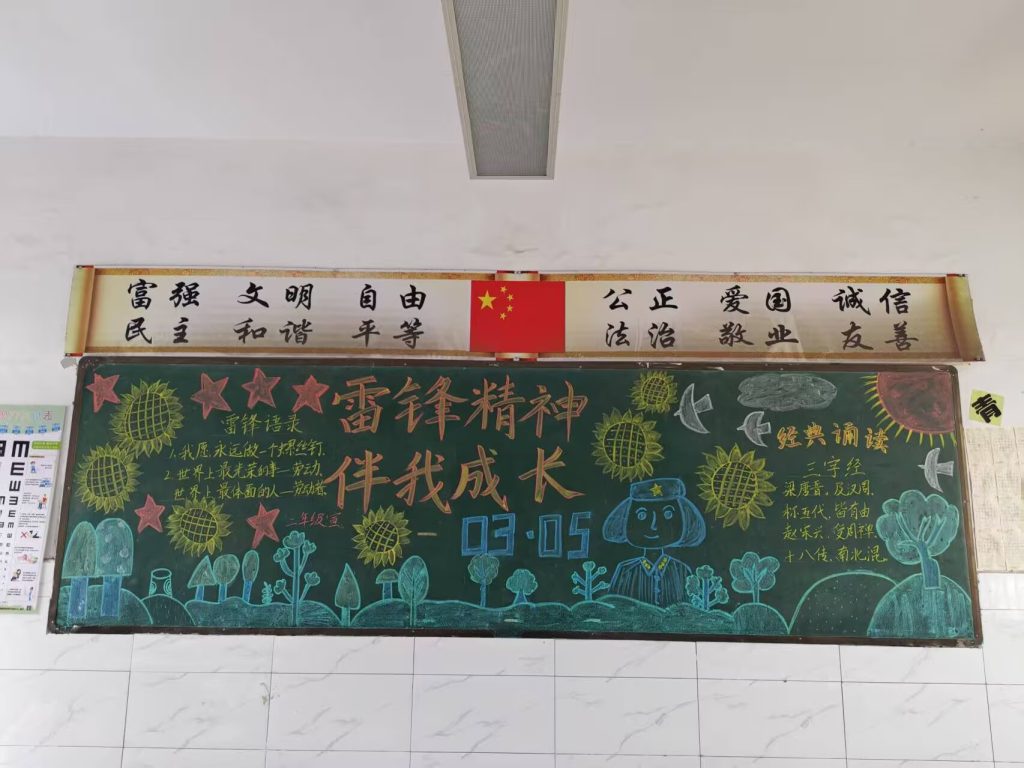 富强 文明 自由 公正 爱国 诚信
民主 和谐 平等 法治 敬业 友善
雷锋精神
伴我成长
03.05
雷锋语录
1.我愿永远做一个螺丝钉.
2.世界上最光荣的事—劳动.
世界上最体面的人—劳动者.
二年级
经典诵读
三字经
梁唐晋,及汉周.
称五代,皆有由
赵宋兴,受周禅.
十八传,南北混。
青